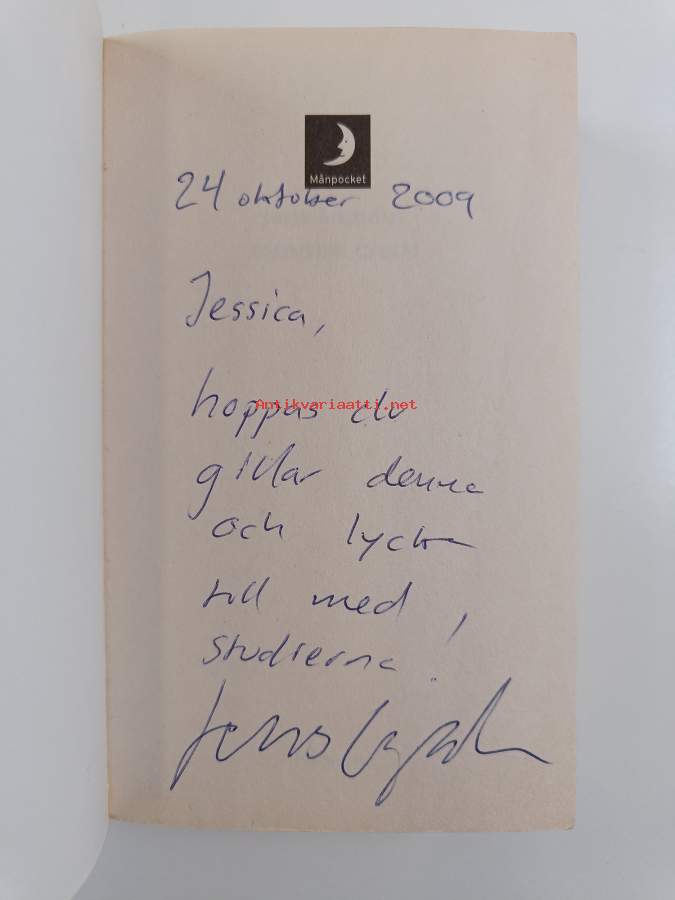 Månpocket
24 oktober 2009
Jessica,
hoppas du
Antikvariaatti.net
gillar denna
och lycka
till med
studierna!
Jens